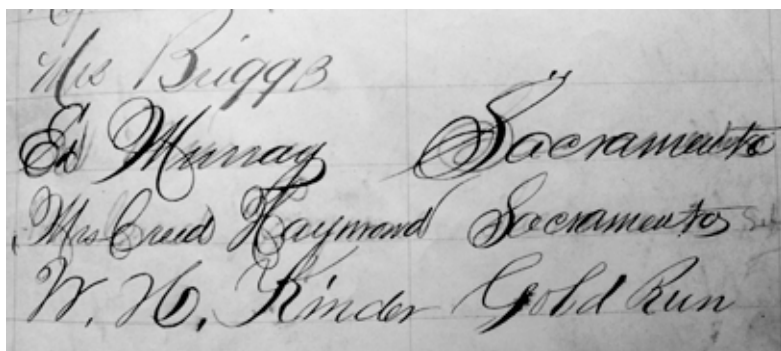 Mrs Briggs
Ed Murray Sacramento
Mrs Creed Haymond Sacramento
W. H. Kinder Gold Run